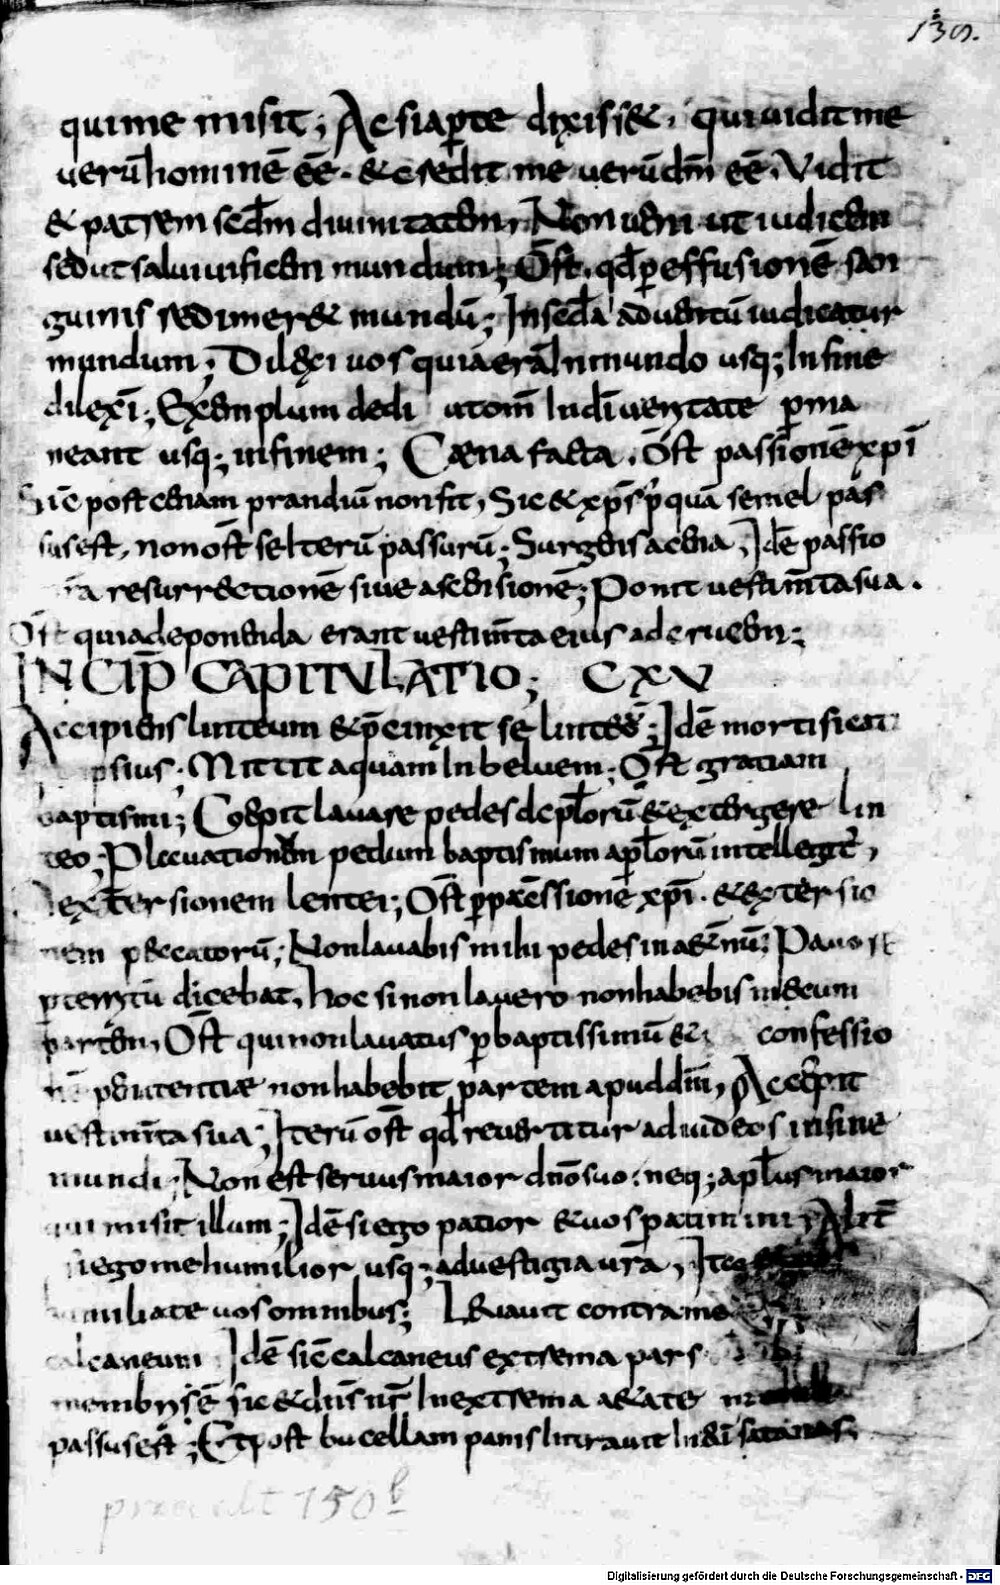 139.
qui me misit; Ac si apte dixisset. qui vidit me
verū hominē eē. & credit me verū dm̄ eē. Vidit
& patrem scdm divinitatem, Non veni ut iudicem
sed ut salvivificem mundum; Ost. qd p effusionē san
guinis redimeret mundū; In scdā adventū iudicatur
mundum; Dilexi vos quia erā in mundo usq; in fine
dilexi; Exemplum dedi ut om̄ in di veritate perma
neant usq; in finem; Caena facta. Ost passionē xpi
Sic post cenam prandiū non fit, Sic & xps p quā semel pas
sus est, non ost se iterū passurū; Surgens a cena, Idē passio
resurrectionē sive ascensionē; Ponit vestimta sua.
Ost quia deponenda erant vestimta eius a deruem;
INCIP CAPITULATIO; CXV
Accipiens linteum & pcinxit se linteo; Idē mortificat
ipsius. Mittit aquam in beluem; Ost gratiam
baptismi; Coepit lavare pedes deplorū & extergere lin
teo; Plecuationem pedum baptismum aplorū intellegit,
extersionem lentei; Ost p passionē xpi. & extersio
nem peccatorū; Non lavabis mihi pedes in aetnū; Pavore
pterritū dicebat, hoc si non lavero non habebis mecum
partem, Ost qui non lavatus p baptissimū & confessio
nē penitentiae non habebit partem apud dm̄, Accepit
vestimta sua; Iterū ost qd revertitur ad iudeos in fine
mundi; Non est servus maior dno suo: neq; aplus maior
qui misit illum; Idē si ego patior & vos patimini; Alit
ego me humilior usq; ad vestigia vra,
humiliate vos omnibus; Levavit contra me
calcaneum Idē sic calcaneus extrema pars
membris ē sic & dns nr in extrema aetate
passus est; Et post bucellam panis intravit in ei satanas;
150b
Digitalisierung gefördert durch die Deutsche Forschungsgemeinschaft - DFG